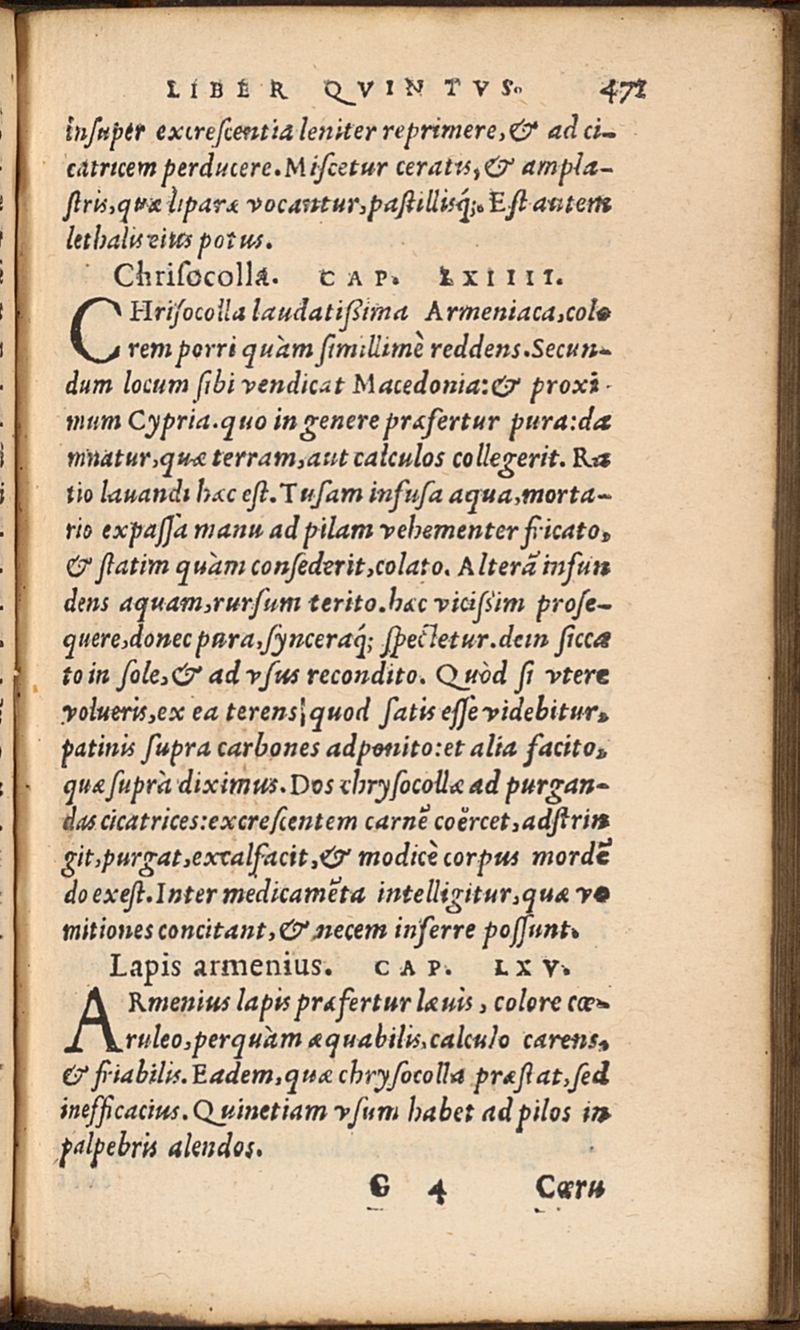 LIBER QVINTVS. 471
insuper excrescentia leniter reprimere, & ad ci-
catricem perducere. Miscetur ceratis, & ampla-
stris, quæ liparæ vocantur, pastillisq́;. Est autem
lethalis eius potus.
Chrisocolla. CAP. LXIIII.
CHrisocolla laudatissima Armeniaca, colo
rem porri quàm simillimè reddens. Secun-
dum locum sibi vendicat Macedonia: & proxi-
mum Cypria. quo in genere præfertur pura: da
mnatur, quæ terram, aut calculos collegerit. Ra
tio lauandi hæc est. Tusam infusa aqua, morta-
rio expassa manu ad pilam vehementer fricato,
& statim quàm consederit, colato. Alterã infun
dens aquam, rursum terito. hæc vicissim prose-
quere, donec pura, synceraq́; spectetur. dein sicca
to in sole, & ad vsus recondito. Quòd si vtere
volueris, ex ea terens, quod satis esse videbitur,
patinis supra carbones adponito: et alia facito,
quæ suprà diximus. Dos chrysocollæ ad purgan-
das cicatrices: excrescentem carnẽ coërcet, adstrin
git, purgat, excalfacit, & modicè corpus mordẽ
do exest. Inter medicamẽta intelligitur, quæ vo
mitiones concitant, & necem inferre possunt.
Lapis armenius. CAP. LXV.
ARmenius lapis præfertur læuis, colore cœ-
ruleo, perquàm æquabilis, calculo carens,
& friabilis. Eadem, quæ chrysocolla præstat, sed
inefficacius. Quinetiam vsum habet ad pilos in
palpebris alendos.
G 4 Cœru